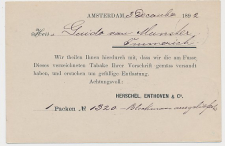 AMSTERDAM, 3 December 1892
Herr Guido van Munster
Emmerich.
Wir theilen Ihnen hierdurch mit, dass wir die am Fusse
Dieses verzeichneten Tabake Ihrer Vorschrift gemäss versandt
haben, und ersuchen um gefällige Entlastung.
Achtungsvoll:
HERSCHEL, ENTHOVEN & Co.
1 Packen No 1320